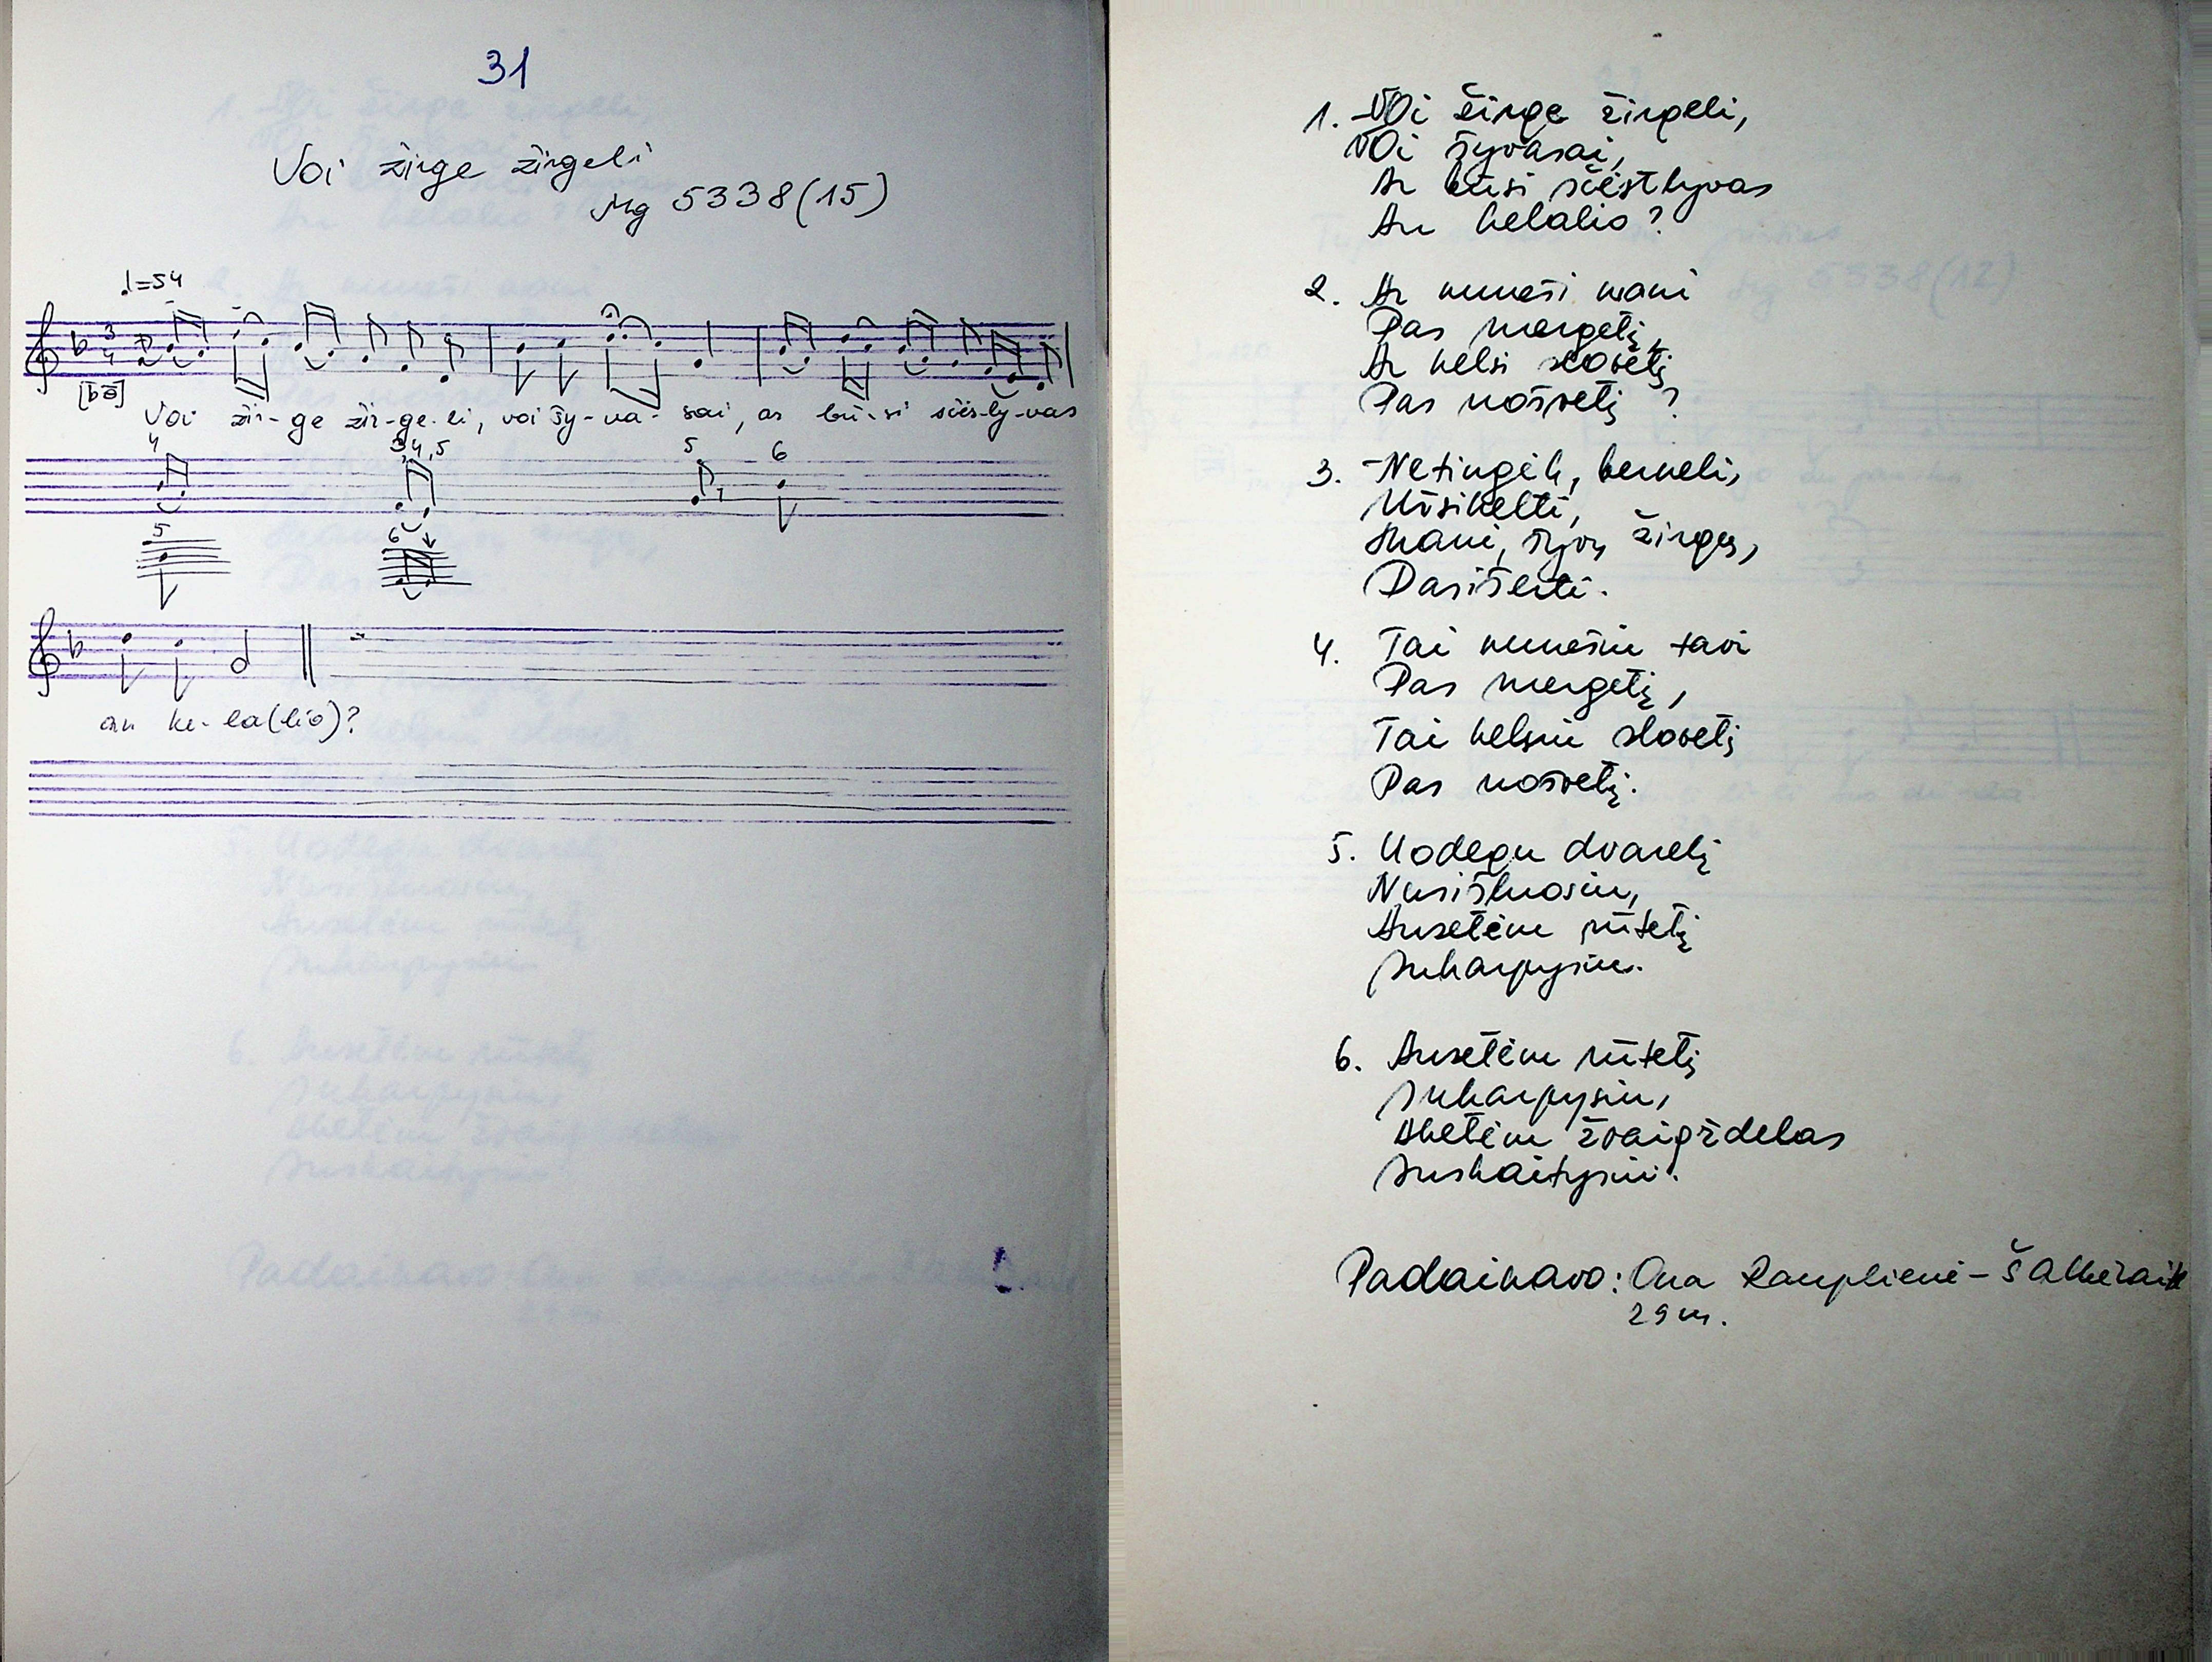 31
Voi žirge žirgeli
Mg 5338(15)
♩=54
3
4
Voi žir-ge žir-ge-li, voi šy-va-sai, ar bū-si siės-ly-vas
4 3,4,5 5 6
5 6
an ke-la(lio)?
1. -Voi žirge žirgeli,
Voi šyvasai,
Ar būsi siėstlyvas
An kelalio?
2. Ar nuneši mani
Pas mergelį,
Ar kelsi slovelį
Pas uošvelį?
3. -Netingėk, berneli,
Užsikelti,
Mani, šyvų žirgų,
Pasišerti.
4. Tai nunešiu tavi
Pas mergelį,
Tai kelsiu slovelį
Pas uošvelį.
5. Uodegu dvarelį
Nusišluosiu,
Auselėm rūtelį
Sukarpysiu.
6. Auselėm rūtelį
Sukarpysiu,
Akelėm žvaigždelas
Suskaitysiu.
Padainavo: Ona
29 m.